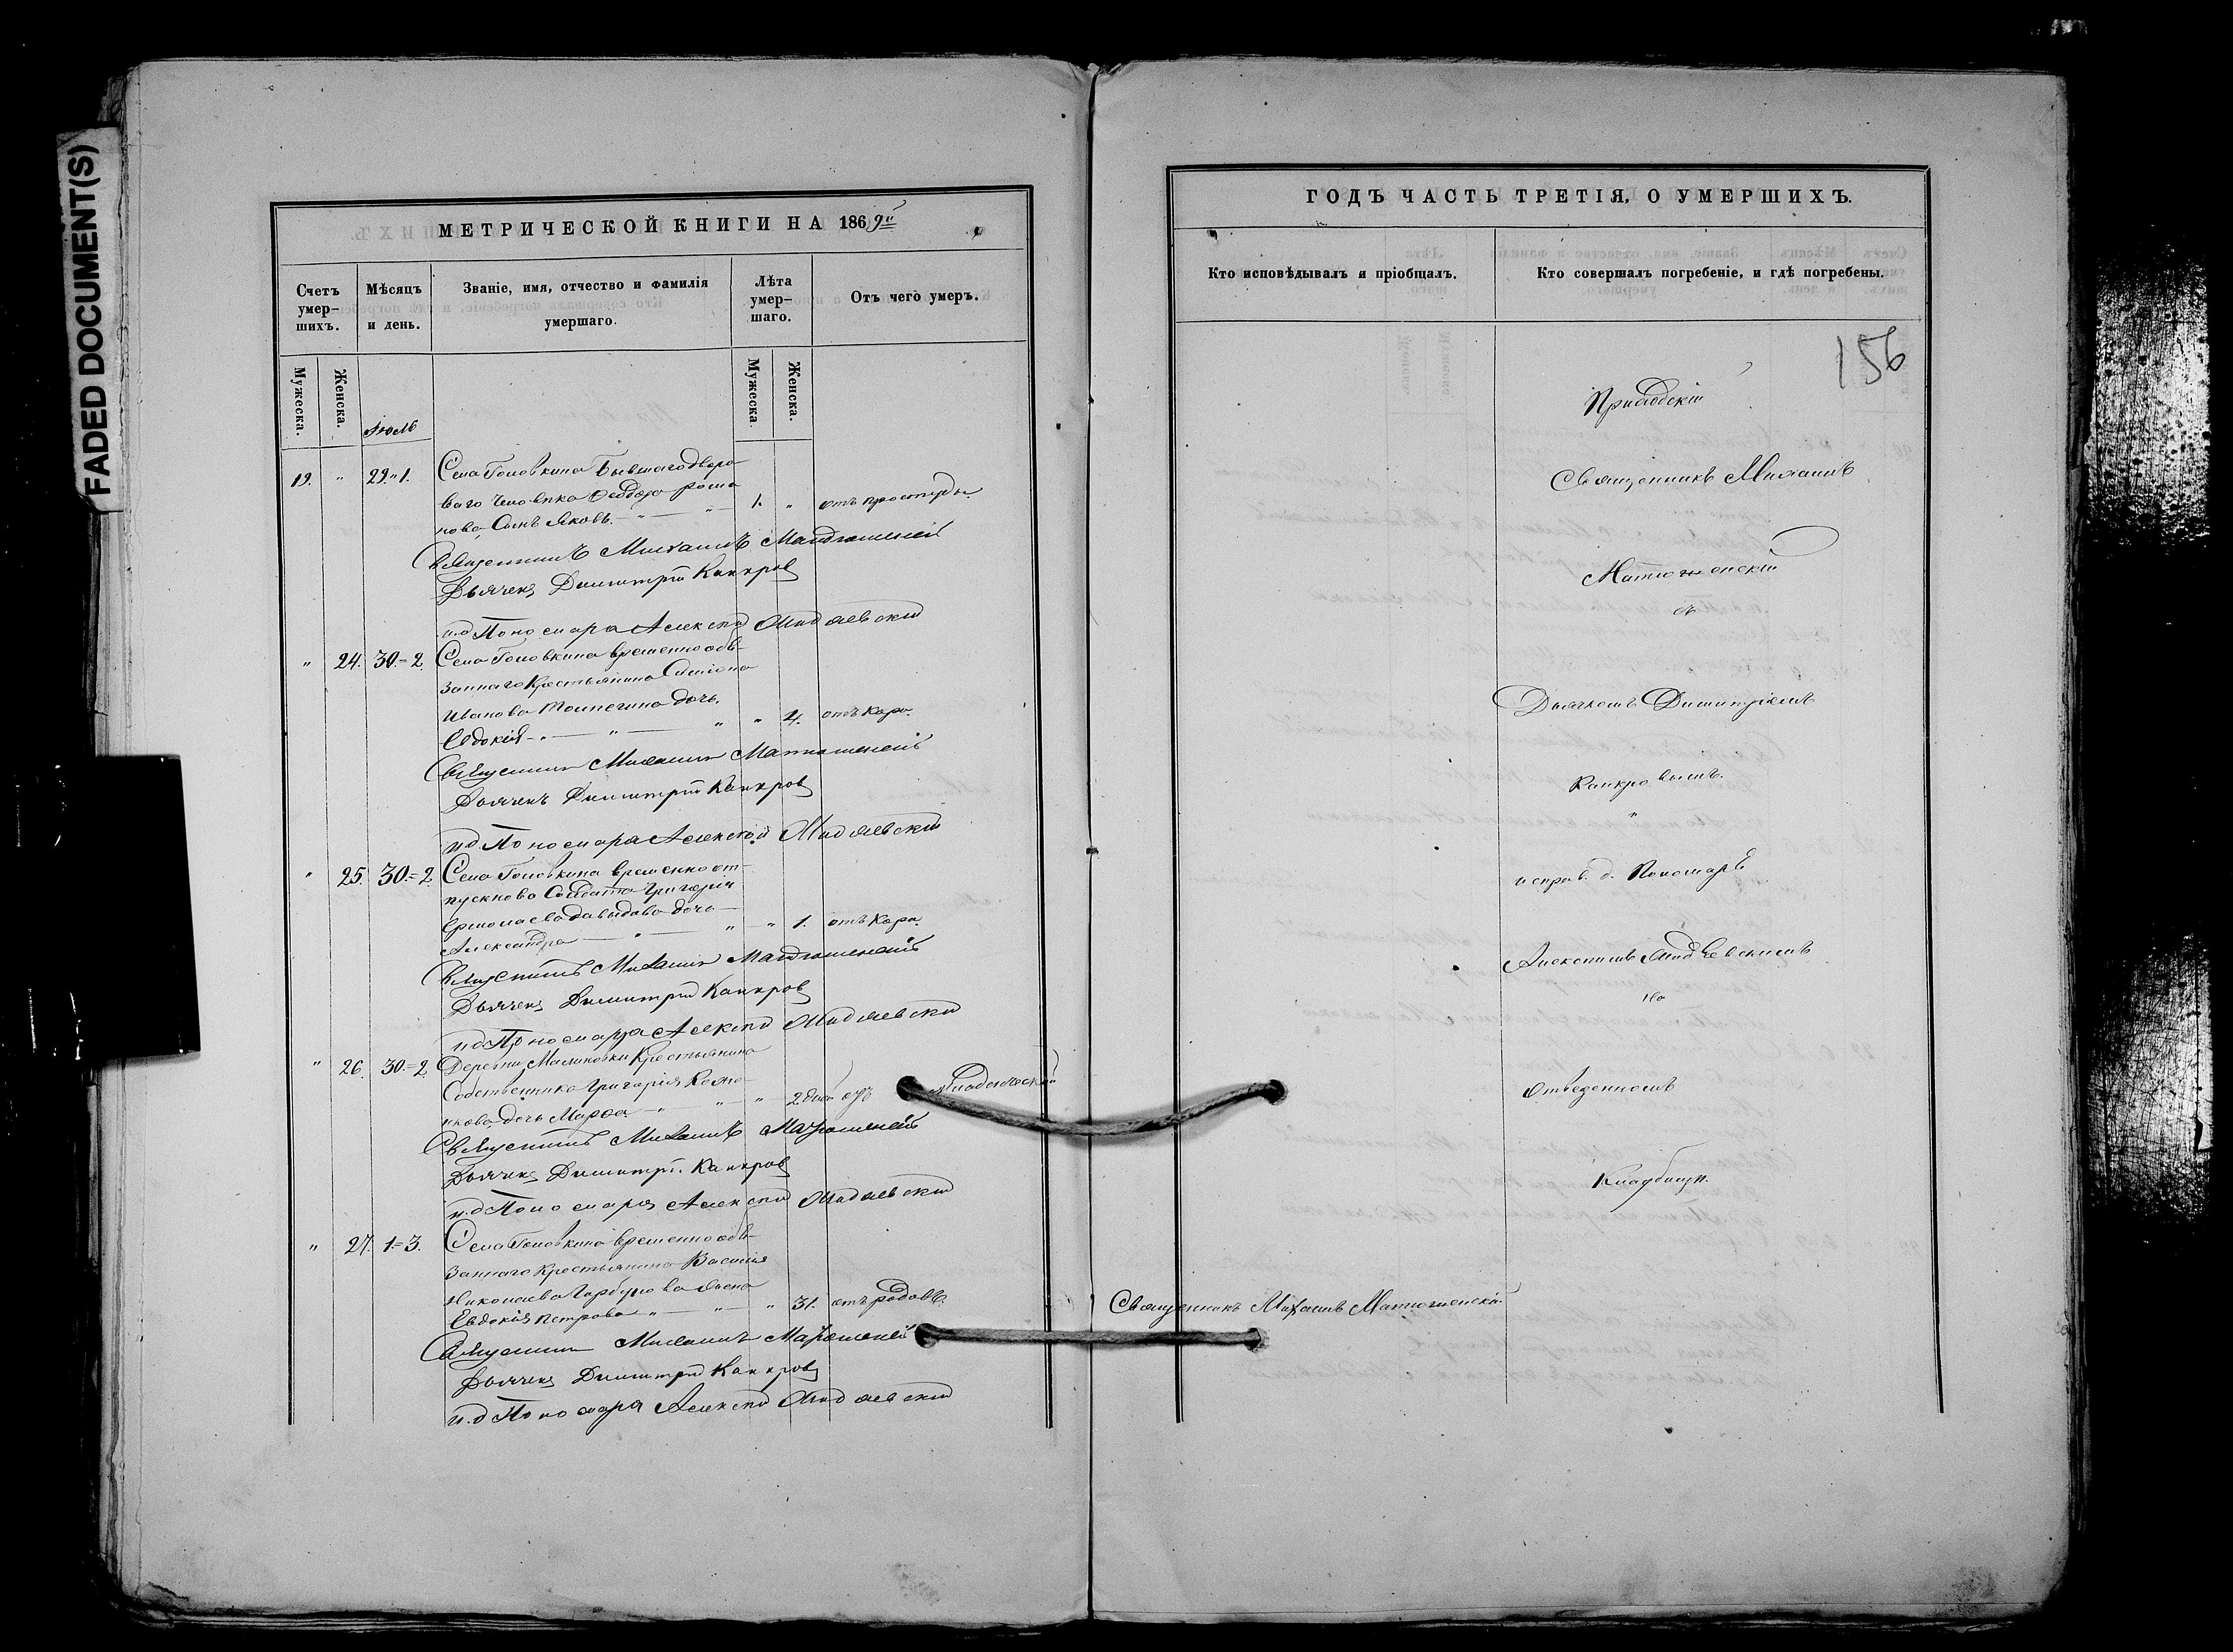 FADED DOCUMENT(S)
МЕТРИЧЕСКОЙ КНИГИ НА 1869й
Счетъ умер-шихъ.
Мѣсяцъ и день.
Званіе, имя, отчество и фамилія умершаго.
Лѣта умер-шаго.
Отъ чего умеръ.
Мужеска.
Женска.
Мужеска.
Женска.
Июль
19. " 29" 1. Села Головкина Бывшаго дворо-
ваго человѣка Феодора Рома
нова, Сынъ Яковъ. 1. " отъ простуды
Священникъ Михаилъ Матюшенскій
Дьячекъ Димитрій Канкров
и.д Пономаря Алексѣй
" 24. 30.=2. Села Головкина временно обя-
заннаго Крестьянина Симеона
Иванова дочь,
Евдокія " " 4. отъ Кори.
Священникъ Михаилъ Матюшенскій
Дьячекъ Димитрій Канкров
и.д. Пономаря Алексѣй
" 25. 30.=2. Села Головкина временно от-
пускнова Солдата Григорія
Ермолаева Давыдова дочь
Александра " " 1. отъ Кори.
Священникъ Михаилъ Матюшенскій
Дьячекъ Димитрій Канкров
и.д Пономаря Алексѣй
" 26. 30.=2. Деревни Крестьянина
Собственника Григорія
дочь Марфа " " 2. дней отъ младенческой
Священникъ Михаилъ Матюшенскій
Дьячекъ Димитрі. Канкров
и.д Пономаря Алексѣй
" 27. 1=3. Села Головкина временно обя-
заннаго Крестьянина Василія
Николаева Жена
Евдокія Петрова " " 31. отъ родовъ.
Священникъ Михаилъ Матюшенскій
Дьячекъ Димитрій Канкров
и.д Пономаря Алексѣй
ГОДЪ ЧАСТЬ ТРЕТІЯ, О УМЕРШИХЪ.
Кто исповѣдывалъ и пріобщалъ.
Кто совершалъ погребеніе, и гдѣ погребены.
156
Приходскій
Священникъ Михаилъ
Матюшенскій
съ
Дьячкомъ Димитріемъ
Канкровымъ.
"
исправ. д. Пономаря
Алексѣемъ
на
отведенномъ
Кладбищѣ.
Священникъ Михаилъ Матюшенскій